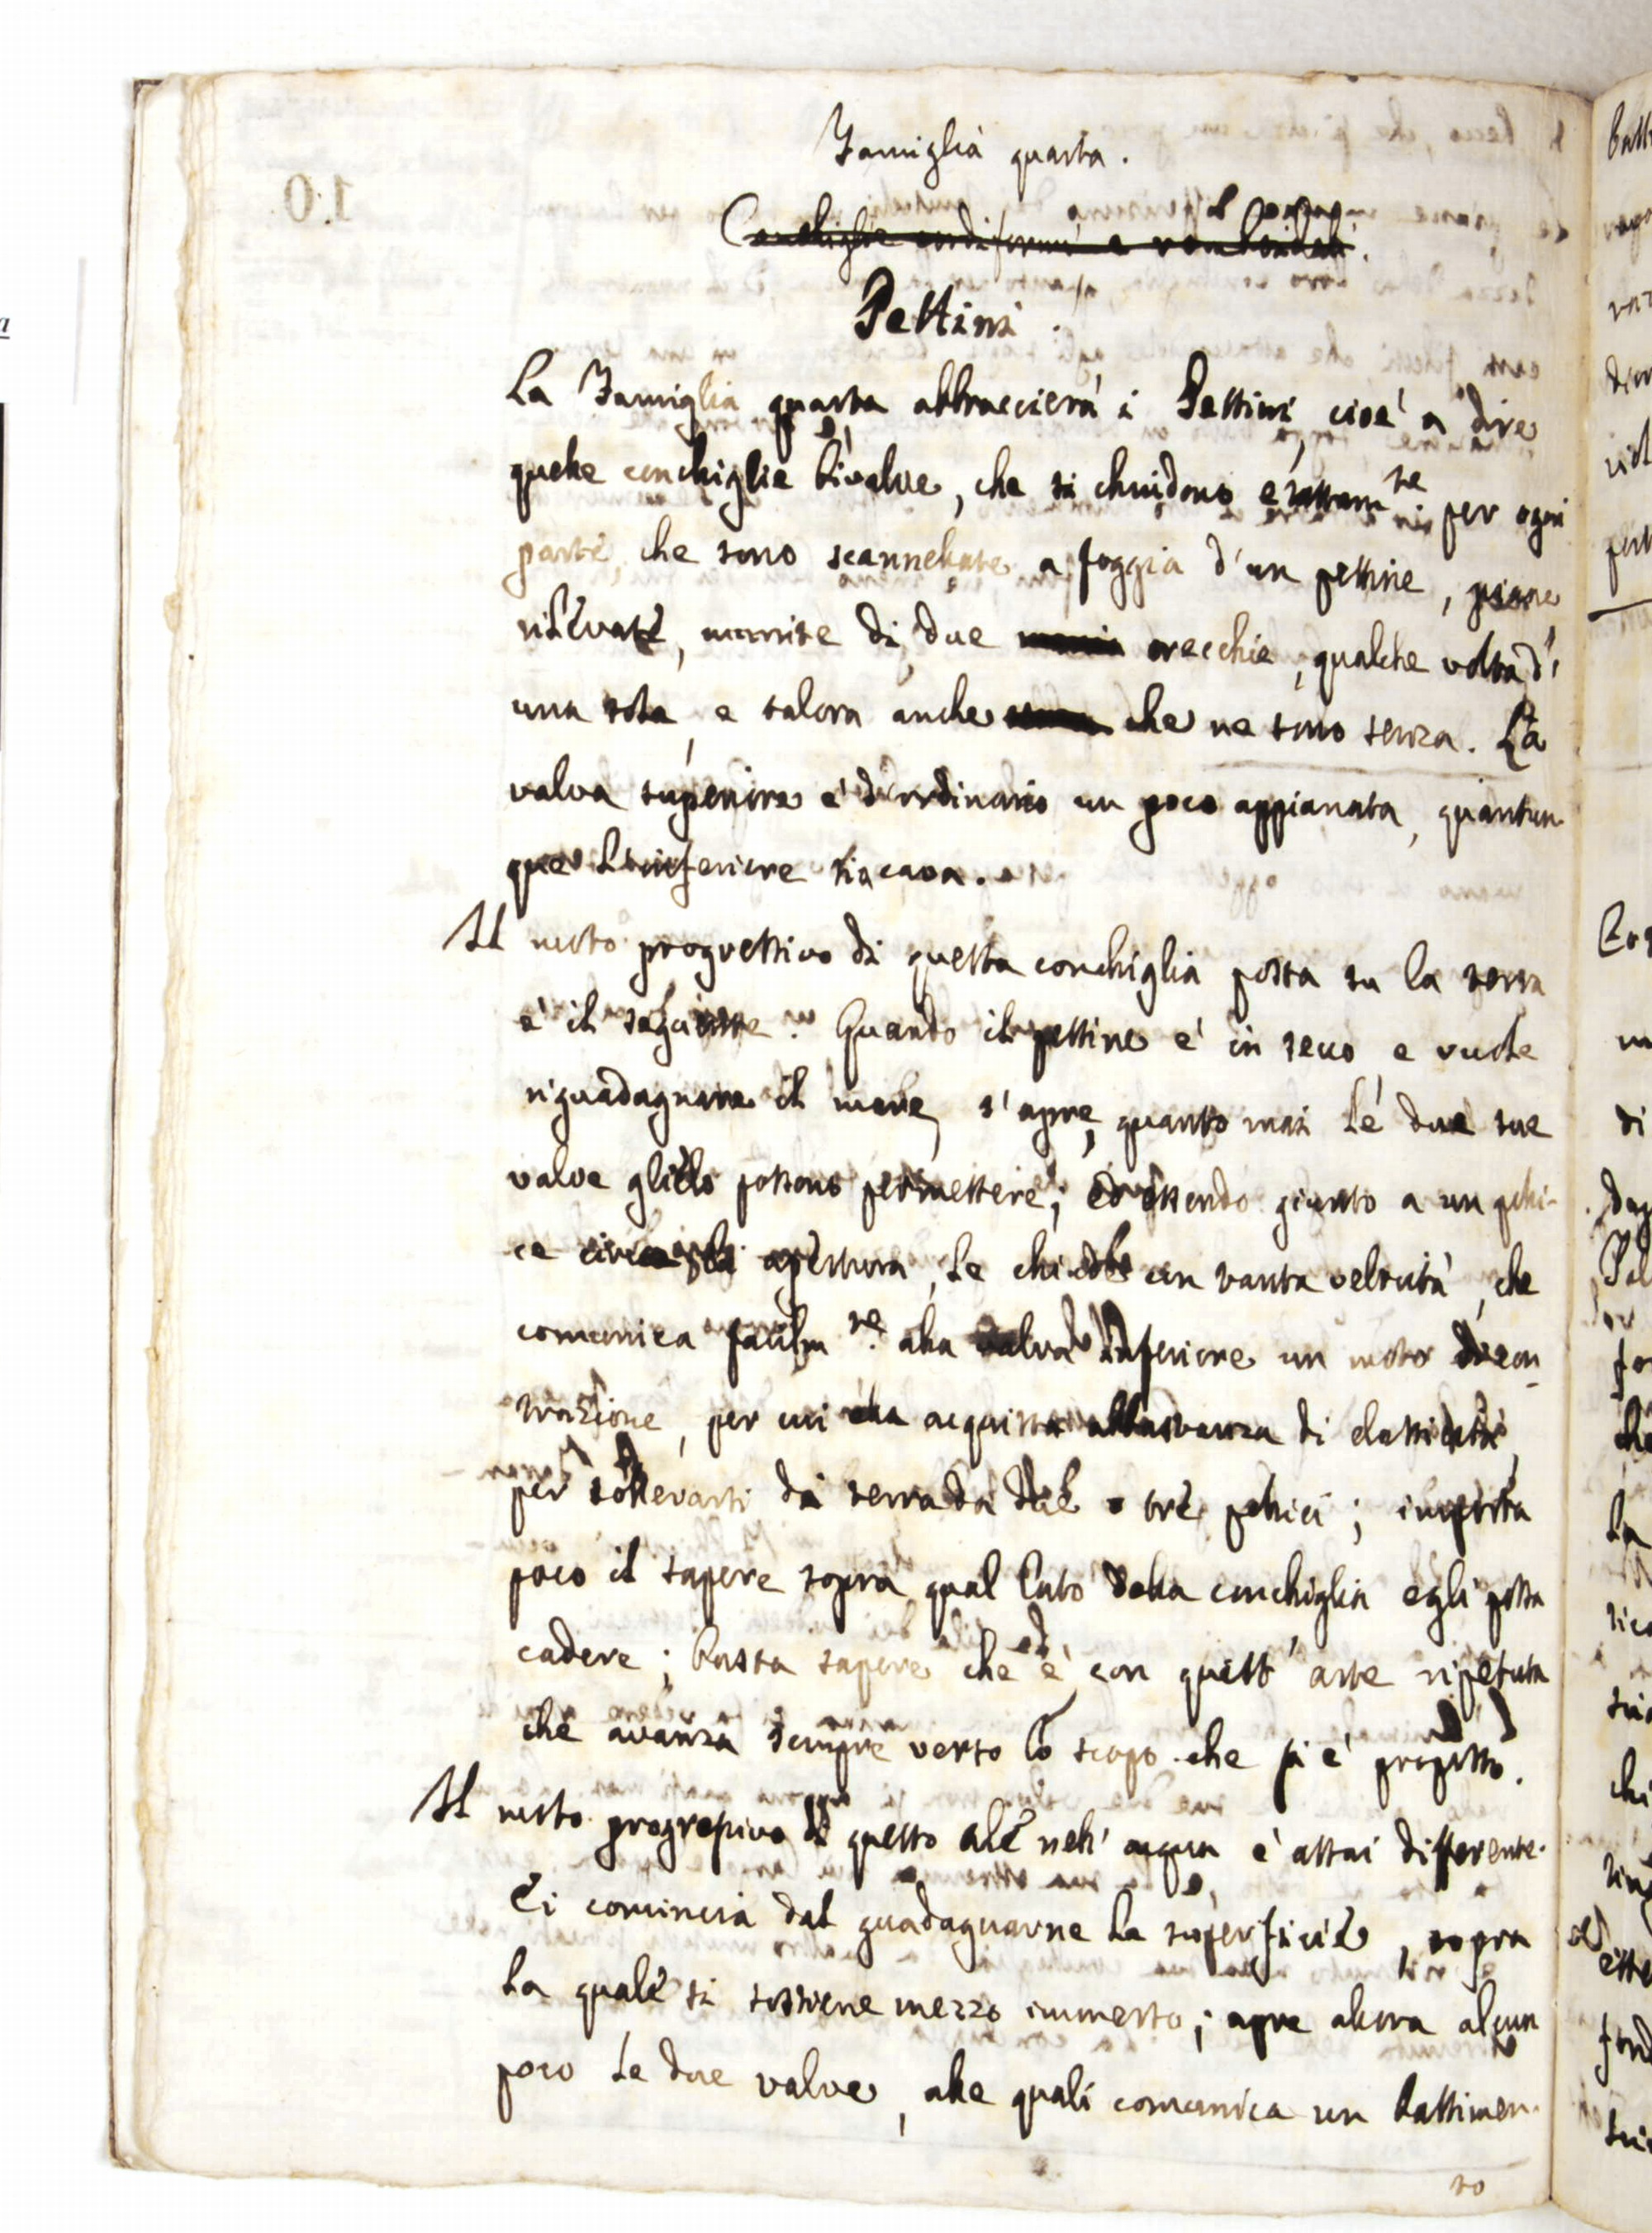 Famiglia quarta.
Conchiglie cordiformi e romboidali.
Pettini.
La Famiglia quarta abbraccierà i Pettini, cioè a dire
quelle conchiglie bivalve, che si chiudono esattamte per ogni
parte, che sono scannellate a foggia d'un pettine, piane
rilevate, munite di due orecchie, qualche volta d'
una sola, e talora anche che ne sono senza. La
valva superiore è d'ordinario un poco appianata, quantun-
que l'inferiore sia cava.
Il moto progressivo di questa conchiglia posta su la terra
è il seguente. Quando il pettine è in secco e vuole
riguadagnare il mare, s'apre, quanto mai le due sue
valve gliello possono permettere; ed essendo giunto a un polli-
ce circa di apertura, le chiude con tanta velocità, che
comunica facilmte. alla valva inferiore un moto di con-
trazione, per cui ella acquista abbastanza di elasticità,
per sollevarsi da terra da due o tre pollici; importa
poco il sapere sopra qual lato della conchiglia egli possa
cadere; basta sapere che è con quest' arte ripetuta
che avanza sempre verso lo scopo che si è prefisso.
Il moto progressivo di questo nell' acqua è assai differente.
Ei comincia dal guadagnarne la superficie, sopra
la quale si sostiene mezzo immerso; apre allora alcun
poco le due valve, alle quali comunica un battimen-
10